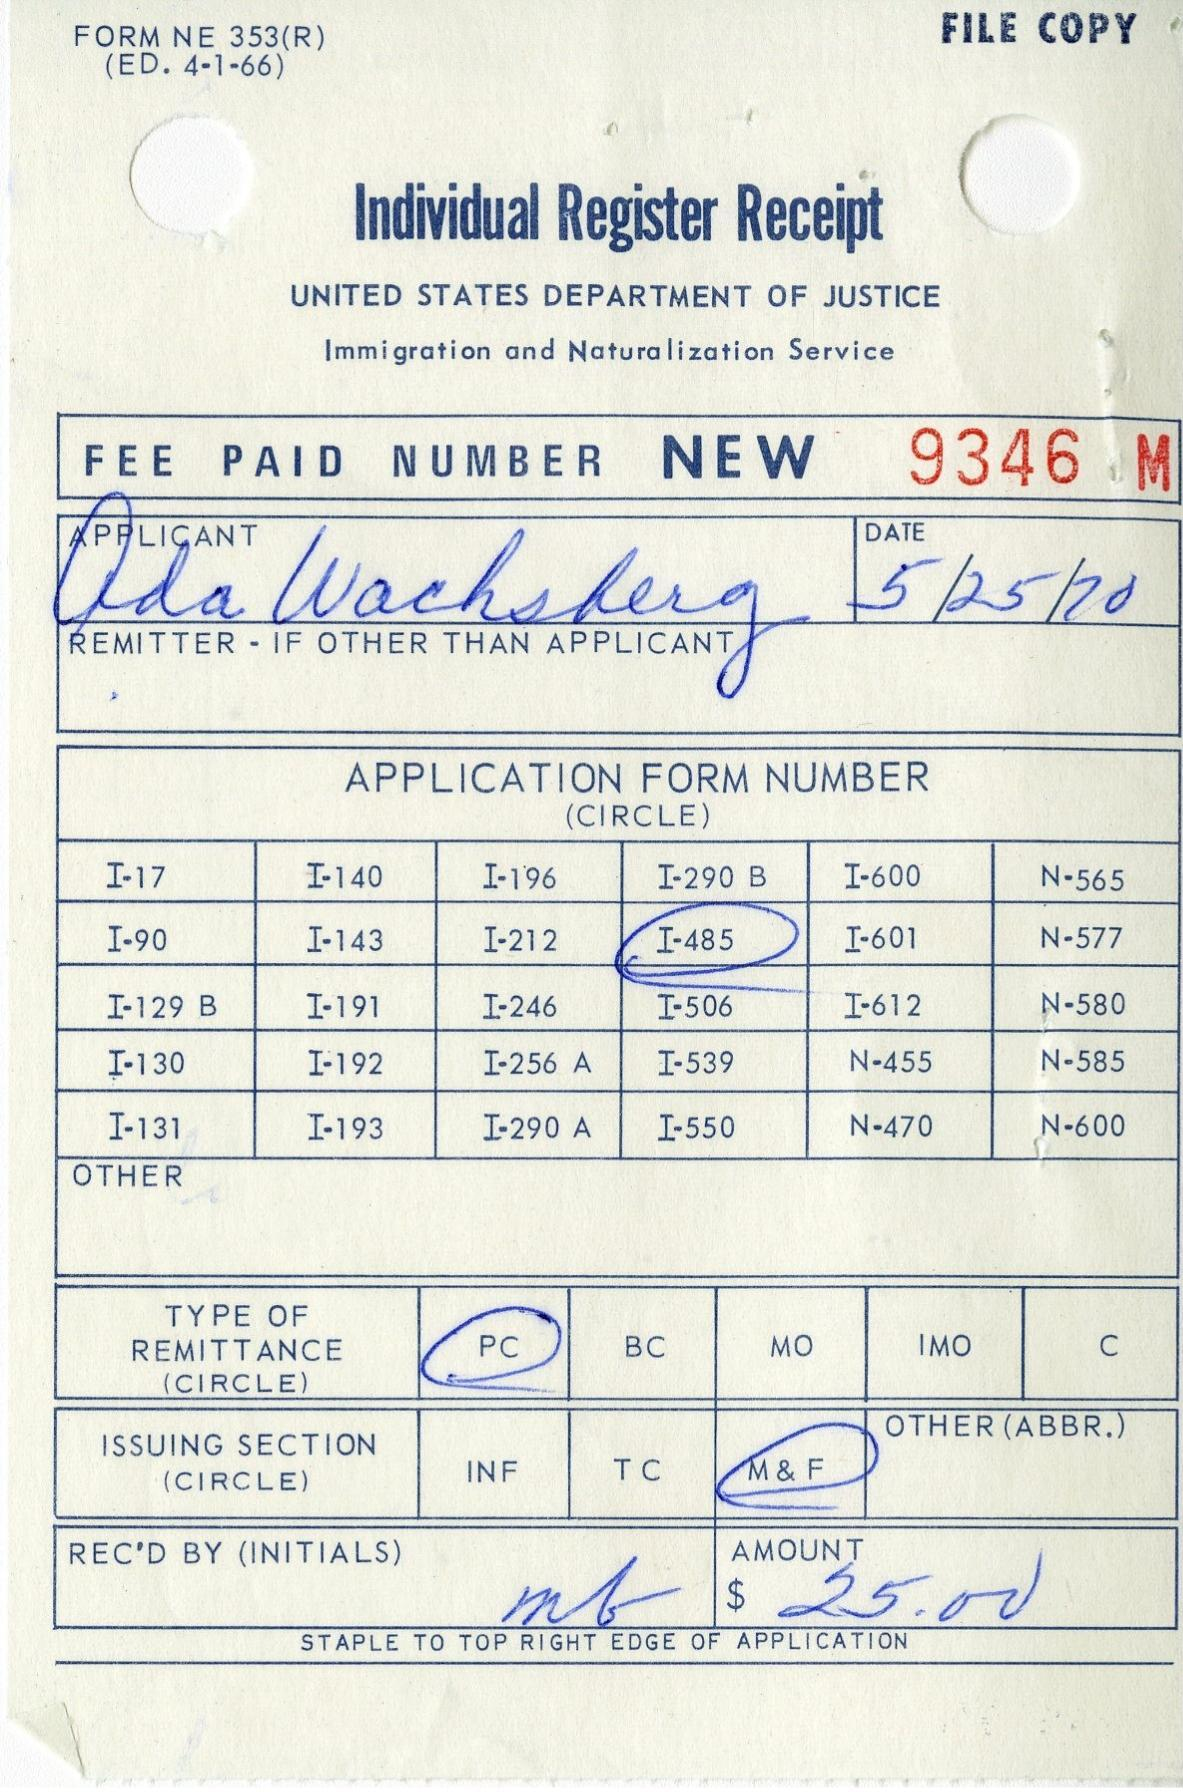 FORM NE 353(R)
(ED. 4-1-66)
FILE COPY
Individual Register Receipt
UNITED STATES DEPARTMENT OF JUSTICE
Immigration and Naturalization Service
FEE PAID NUMBER NEW 9346 M
APPLICANT DATE
Ada Wachsberg 5/25/70
REMITTER - IF OTHER THAN APPLICANT
APPLICATION FORM NUMBER
(CIRCLE)
I-17 I-140 I-196 I-290 B I-600 N-565
I-90 I-143 I-212 I-485 I-601 N-577
I-129 B I-191 I-246 I-506 I-612 N-580
I-130 I-192 I-256 A I-539 N-455 N-585
I-131 I-193 I-290 A I-550 N-470 N-600
OTHER
TYPE OF
REMITTANCE PC BC MO IMO C
(CIRCLE)
OTHER (ABBR.)
ISSUING SECTION
(CIRCLE) INF TC M & F
REC'D BY (INITIALS) AMOUNT
mb $ 25.00
STAPLE TO TOP RIGHT EDGE OF APPLICATION